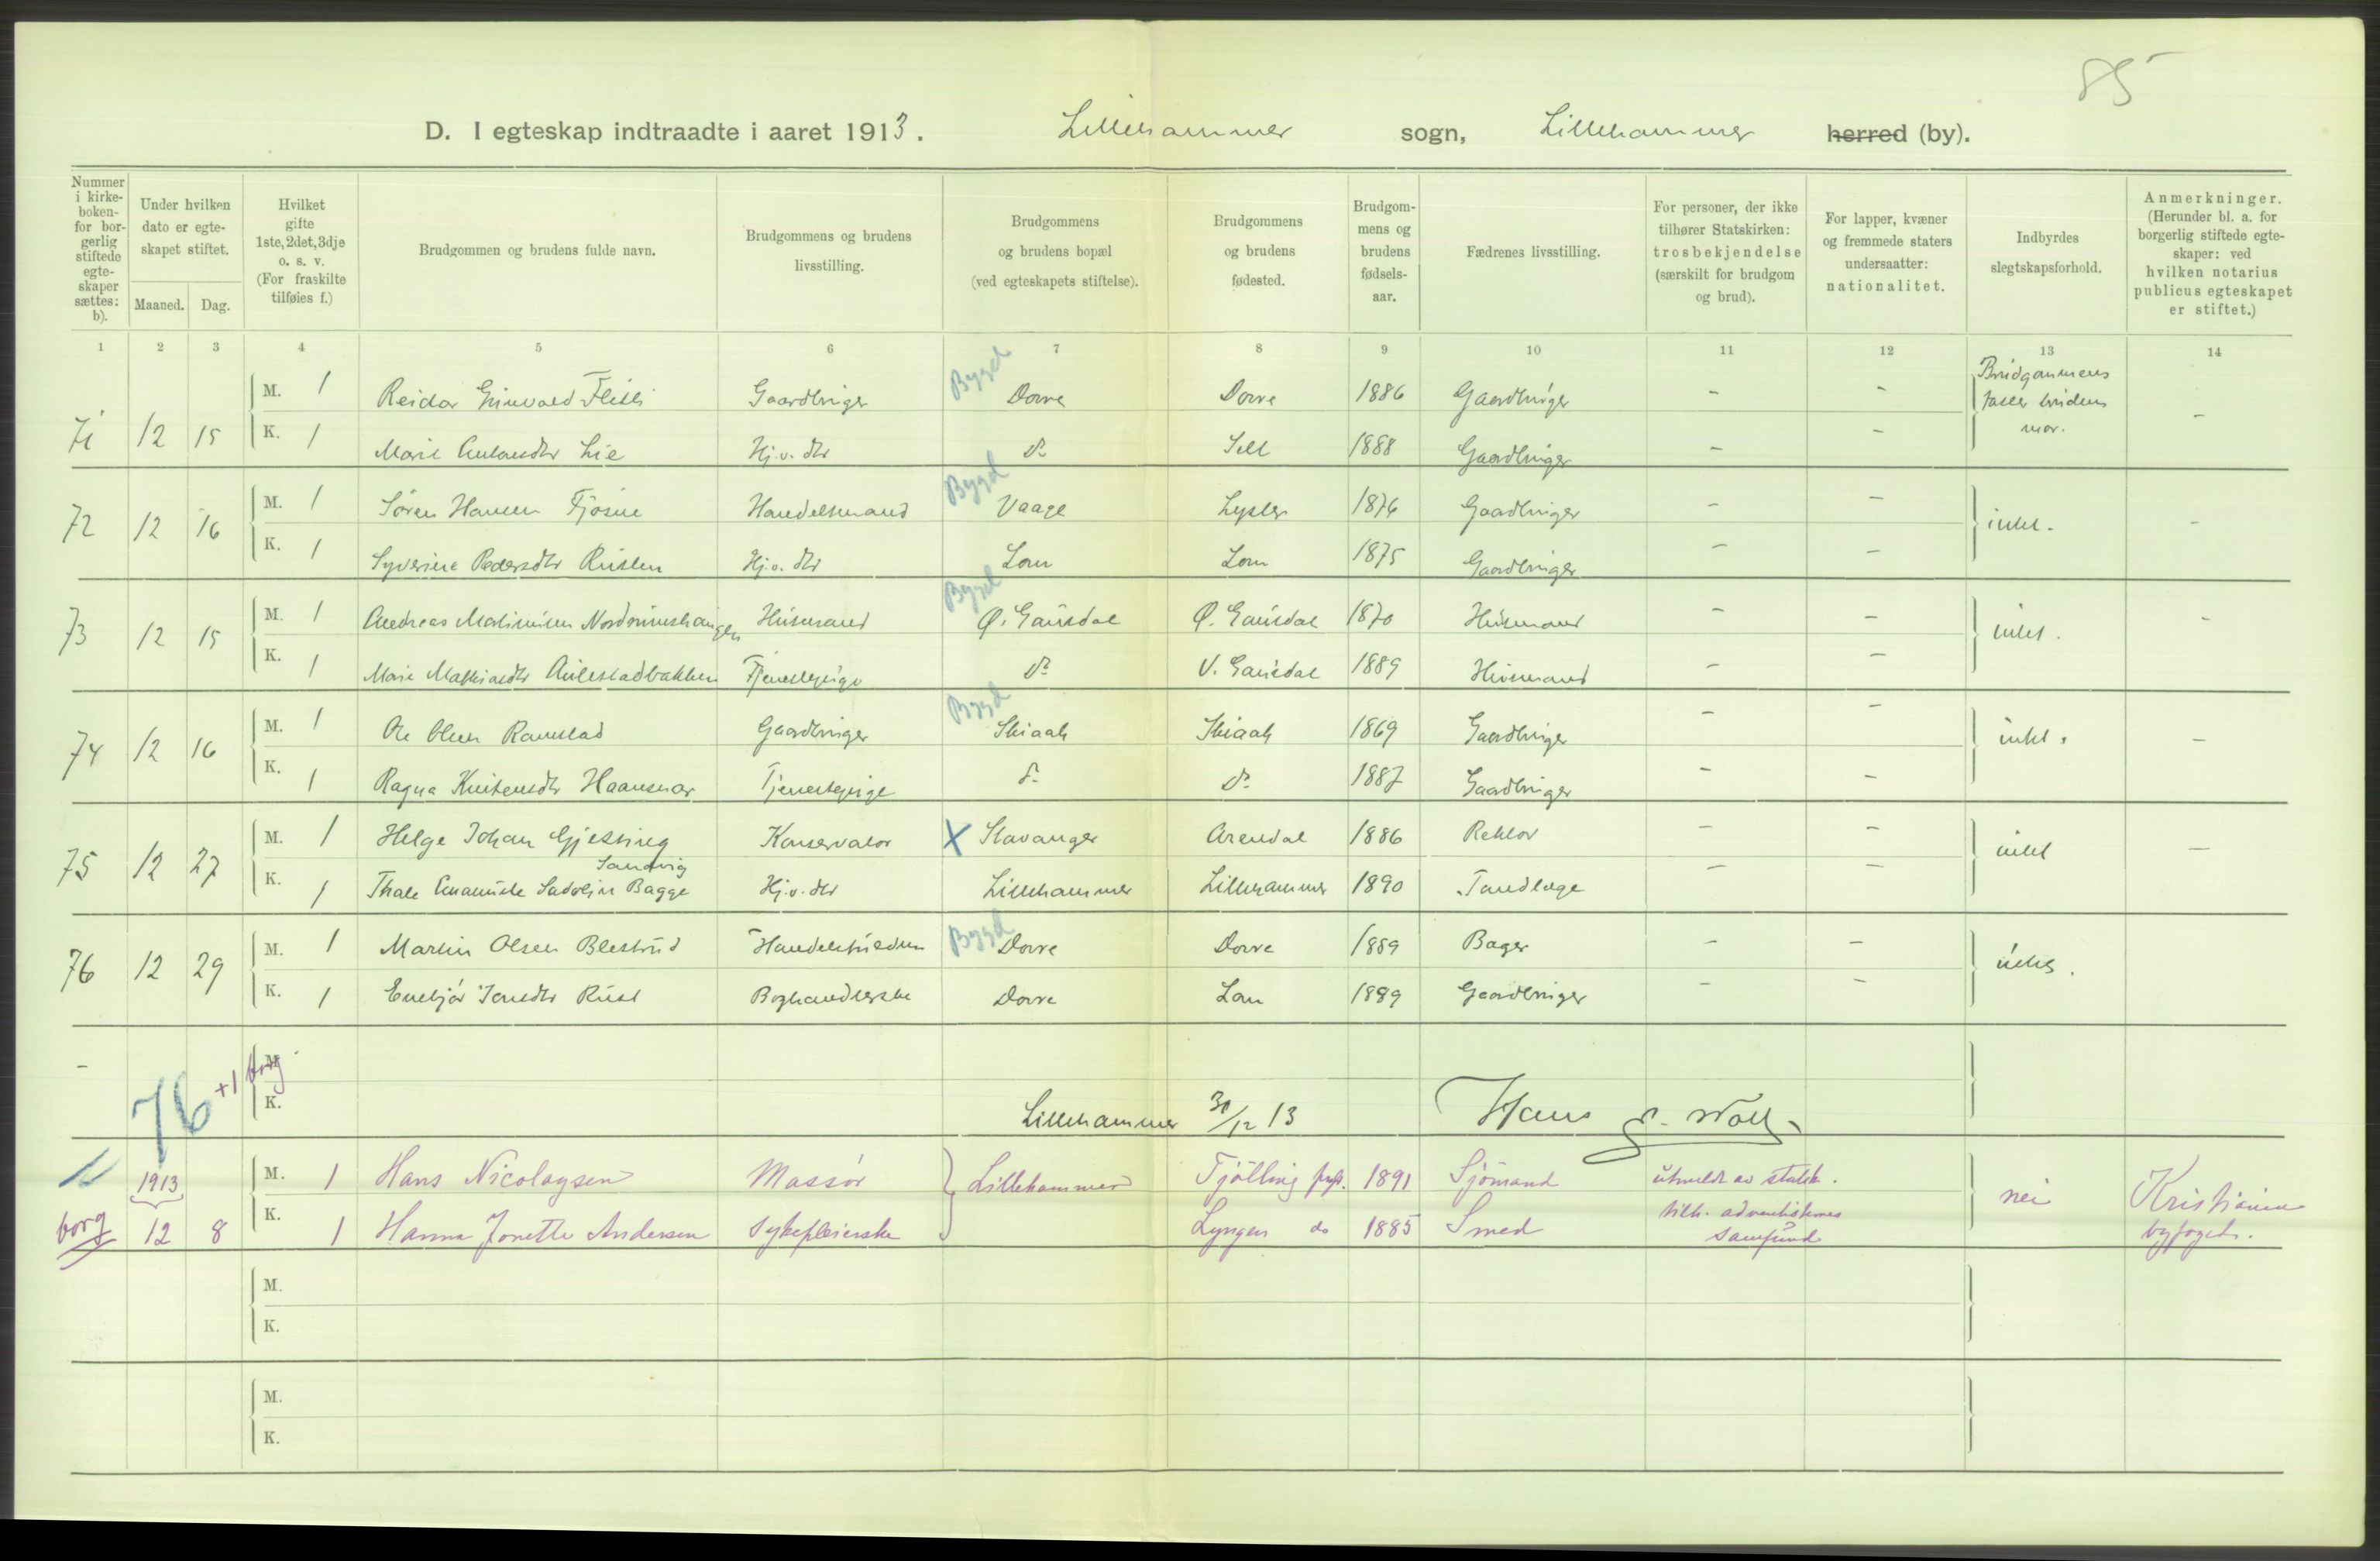 85
D. I egteskap indtraadte i aaret 1913. Lillehammer sogn, Lillehammer herred (by).
Nummer i kirke- boken- for bor- gerlig stiftede egte- skaper sættes: b).
Under hvilken dato er egte- skapet stiftet.
Maaned. Dag.
Hvilket gifte 1ste, 2det, 3dje o. s. v. (For fraskilte tilføies f.)
Brudgommen og brudens fulde navn.
Brudgommens og brudens livsstilling.
Brudgommens og brudens bopæl (ved egteskapets stiftelse).
Brudgommens og brudens fødested.
Brudgom- mens og brudens fødsels- aar.
Fædrenes livsstilling.
For personer, der ikke tilhører Statskirken: trosbekjendelse (særskilt for brudgom og brud).
For lapper, kvæner og fremmede staters undersaatter: nationalitet.
Indbyrdes slegtskapsforhold.
Anmerkninger. (Herunder bl. a. for borgerlig stiftede egte- skaper: ved hvilken notarius publicus egteskapet er stiftet.)
1 2 3 4 5 6 7 8 9 10 11 12 13 14
M. 1 Reidar Gaardbruger Bygd Dovre Dovre 1886 Gaardbruger - - Brudgommens
mor.
71 12 15 K. 1 Marie Lie Hj.v. dtr do Sell 1888 Gaardbruger - - -
M. 1 Søren Hansen Fjösne Handelsmand Bygd Vaage Lyster 1876 Gaardbruger - -
72 12 16 K. 1 Syverine Pedersdtr Rusten Hj.v. dtr Lom Lom 1875 Gaardbruger - - intet. -
M. 1 Andreas Nordrumshaugen Husmand Bygd Ø. Gausdal Ø. Gausdal 1870 Husmand - -
73 12 15 K. 1 Marie Mathiasdtr Aulestadbakken Tjenestepige do V. Gausdal 1889 Husmand - - intet. -
M. 1 Ole Olsen Ramstad Gaardbruger Bygd Skiaak Skiaak 1869 Gaardbruger - -
74 12 16 K. 1 Ragna Haansnar Tjenestepige do do 1887 Gaardbruger - - intet. -
M. 1 Helge Johan Gjessing Konservator X Stavanger Arendal 1886 Rektor - -
Sandvig
75 12 27 K. 1 Thale Bagge Hj.v. dtr Lillehammer Lillehammer 1890 Tandlæge - - intet -
M. 1 Martin Olsen Blestrud Bygd Dovre Dovre 1889 Bager - -
76 12 29 K. 1 Rust Boghandlerske Dovre Lom 1889 Gaardbruger - - intet.
- 76 +1 borg M.
K. Lillehammer 30/12 13 Hans
1913 M. 1 Hans Nicolaysen Massör Lillehammer Tjölling 1891 Sjömand utmeldt av statsk. nei Kristiania
borg 12 8 K. 1 Hanna Jonette Andersen Sykepleierske Lyngen do 1885 Smed tilh. adventisternes
samfund
byfoged.
M.
K.
M.
K.